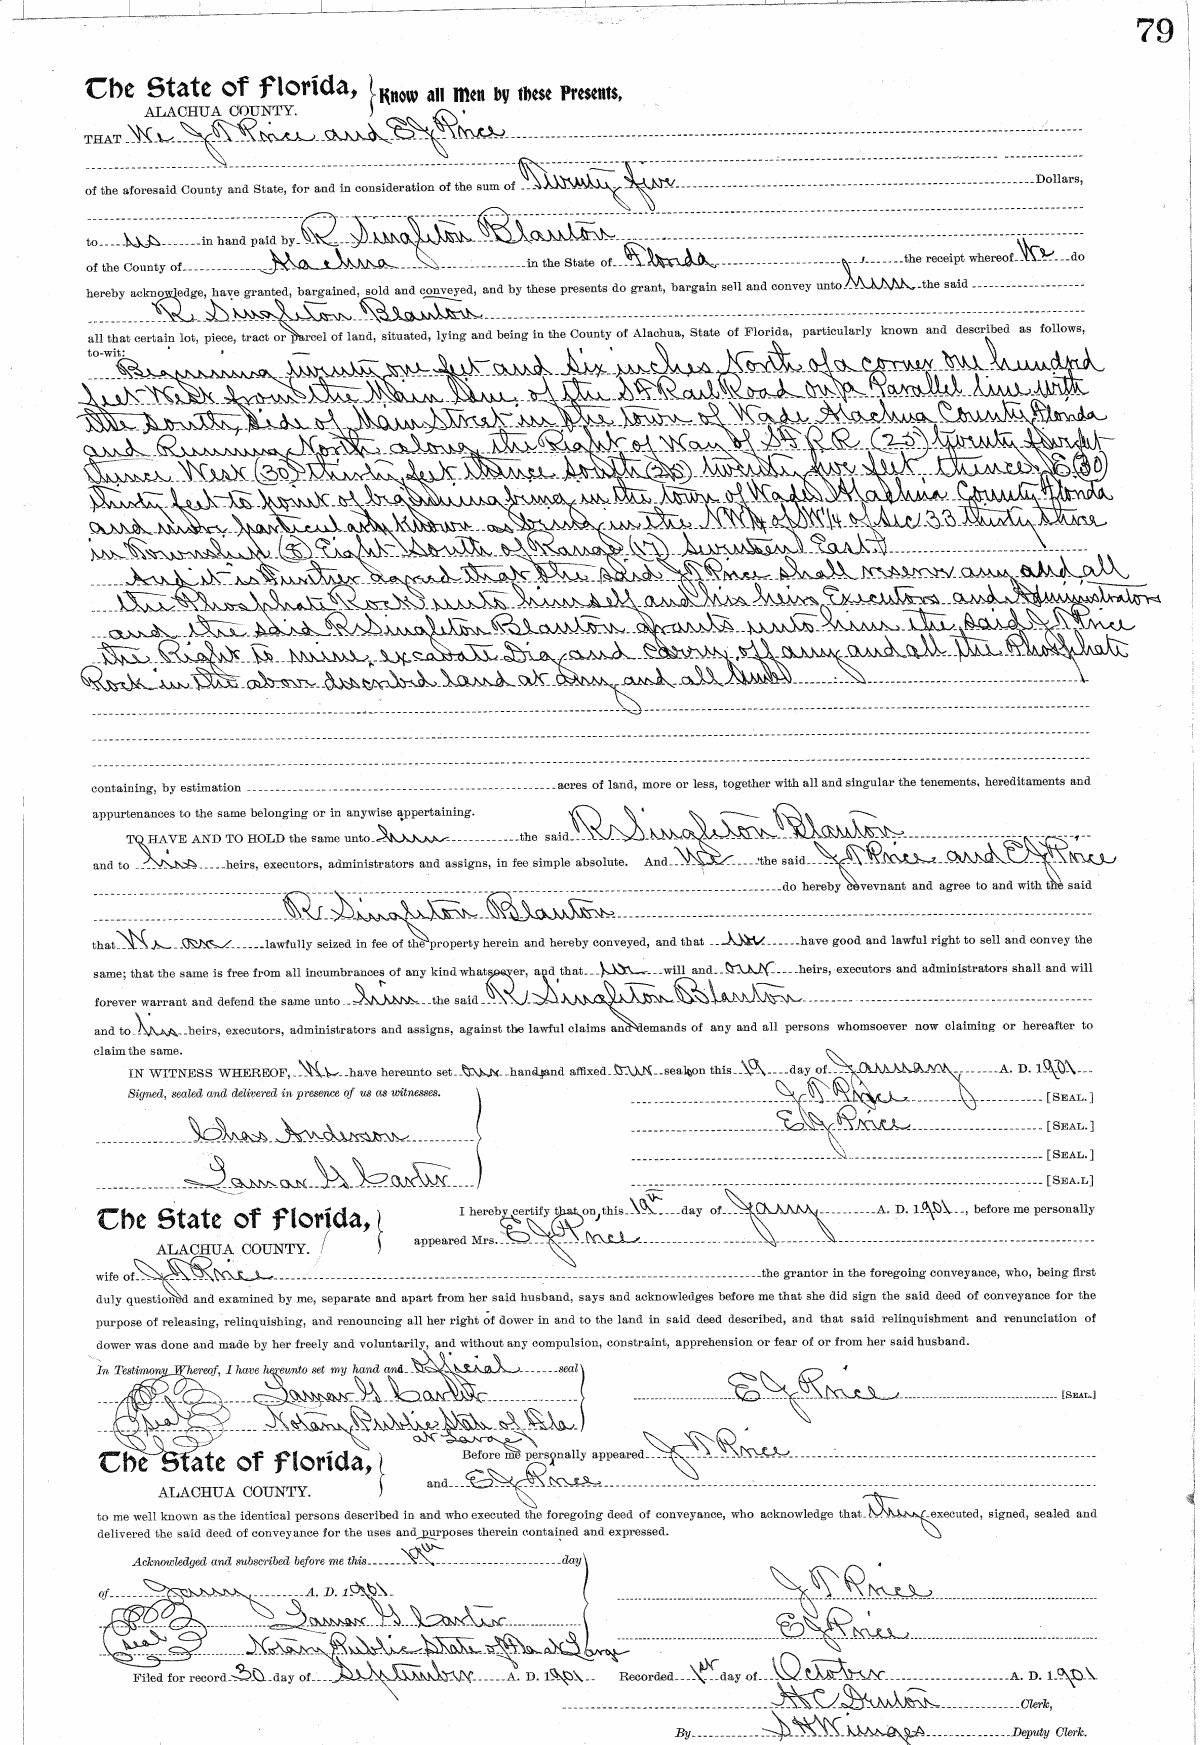 79
The State of Florida, Know all Men by these Presents,
ALACHUA COUNTY.
THAT We J T Price and E J Price
of the aforesaid County and State, for and in consideration of the sum of Twenty five Dollars,
to us in hand paid by R Singleton Blanton
of the County of Alachua in the State of Florida the receipt whereof We do
hereby acknowledge, have granted, bargained, sold and conveyed, and by these presents do grant, bargain sell and convey unto him the said
R Singleton Blanton
all that certain lot, piece, tract or parcel of land, situated, lying and being in the County of Alachua, State of Florida, particularly known and described as follows,
to-wit:
Beginning twenty one feet and six inches North of a corner one hundred
feet West from the Main line of the S F Rail Road on a Parallel line with
the South Side of Main Street in the town of Wade Alachua County Florida
and Running North along the Right of Way of S F R R (25) twenty five feet
thence West (30) thirty feet thence South (25) twenty five feet thence E (30)
thirty feet to point of beginning being in the town of Wade Alachua County Florida
and more particularly known as being in the NW¼ of W¼ of Sec 33 thirty three
in Township (8) Eight South of Range (17) Seventeen East.
And it is Further agreed that the said J T Price shall reserve any and all
the Phosphate Rock unto himself and his heirs Executors and Administrators
and the said R Singleton Blanton grants unto him the said J T Price
the Right to mine, excavate Dig and carry off any and all the Phosphate
Rock in the above discribed land at any and all times
containing, by estimation acres of land, more or less, together with all and singular the tenements, hereditaments and
appurtenances to the same belonging or in anywise appertaining.
TO HAVE AND TO HOLD the same unto him the said R Singleton Blanton
and to his heirs, executors, administrators and assigns, in fee simple absolute. And We the said J T Price and E J Price
do hereby covevnant and agree to and with the said
R Singleton Blanton
that We are lawfully seized in fee of the property herein and hereby conveyed, and that we have good and lawful right to sell and convey the
same; that the same is free from all incumbrances of any kind whatsoever, and that we will and our heirs, executors and administrators shall and will
forever warrant and defend the same unto him the said R Singleton Blanton
and to his heirs, executors, administrators and assigns, against the lawful claims and demands of any and all persons whomsoever now claiming or hereafter to
claim the same.
IN WITNESS WHEREOF, We have hereunto set our hand and affixed our seal on this 19 day of January A. D. 1901
Signed, sealed and delivered in presence of us as witnesses. J T Price [SEAL.]
Chas Anderson E J Price [SEAL.]
[SEAL.]
Lamar G Carter [SEA.L]
The State of Florida, I hereby certify that on this 19th day of Jany A. D. 1901, before me personally
ALACHUA COUNTY. appeared Mrs. E J Price
wife of J T Price the grantor in the foregoing conveyance, who, being first
duly questioned and examined by me, separate and apart from her said husband, says and acknowledges before me that she did sign the said deed of conveyance for the
purpose of releasing, relinquishing, and renouncing all her right of dower in and to the land in said deed described, and that said relinquishment and renunciation of
dower was done and made by her freely and voluntarily, and without any compulsion, constraint, apprehension or fear of or from her said husband.
In Testimony Whereof, I have hereunto set my hand and official seal
Lamar G Carter E J Price [SEAL.]
Seal Notary Public State of Fla
at Large
The State of Florida, Before me personally appeared J T Price
ALACHUA COUNTY. and E J Price
to me well known as the identical persons described in and who executed the foregoing deed of conveyance, who acknowledge that they executed, signed, sealed and
delivered the said deed of conveyance for the uses and purposes therein contained and expressed.
Acknowledged and subscribed before me this 19th day
of Jany A. D. 1901 J T Price
Lamar G Carter E J Price
Seal Notary Public State of Fla at Large
Filed for record 30 day of September A. D. 1901 Recorded 1st day of October A. D. 1901
H C Denton Clerk,
By S H Wienges Deputy Clerk.